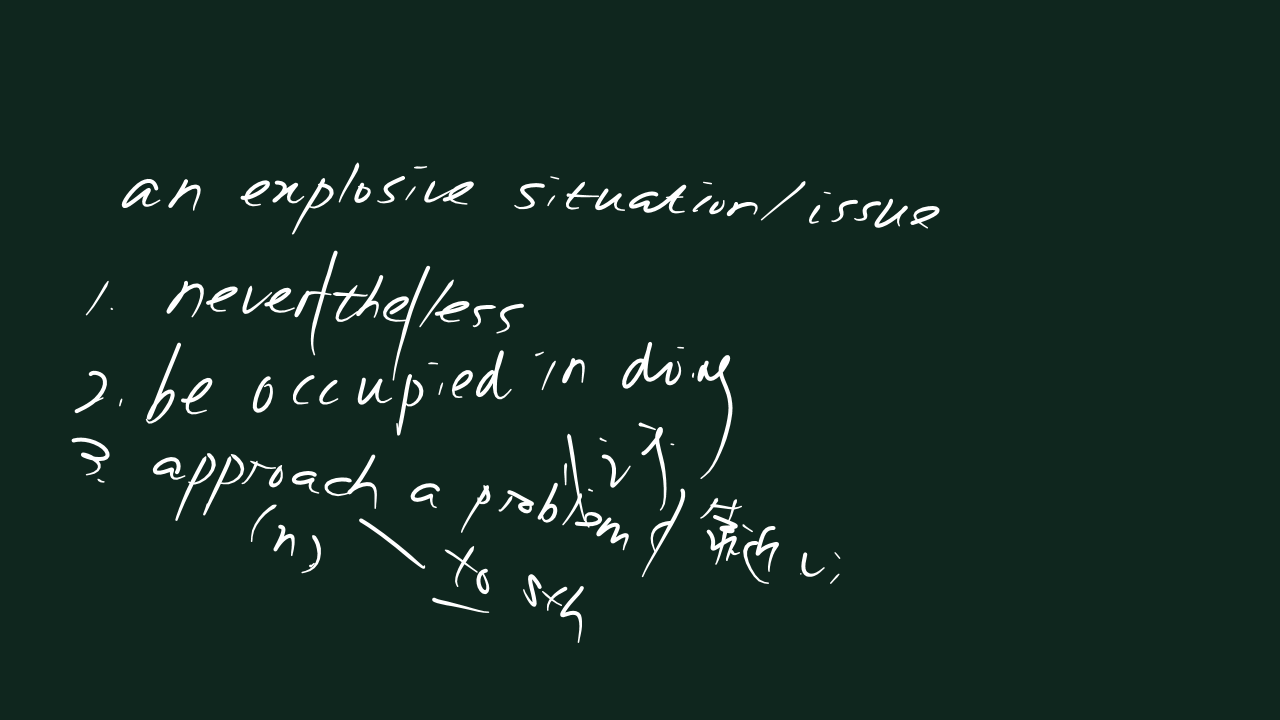 an explosive situation/issue
1. never/the/less
2. be occupied in doing
3. approach a problem
(n) to sth